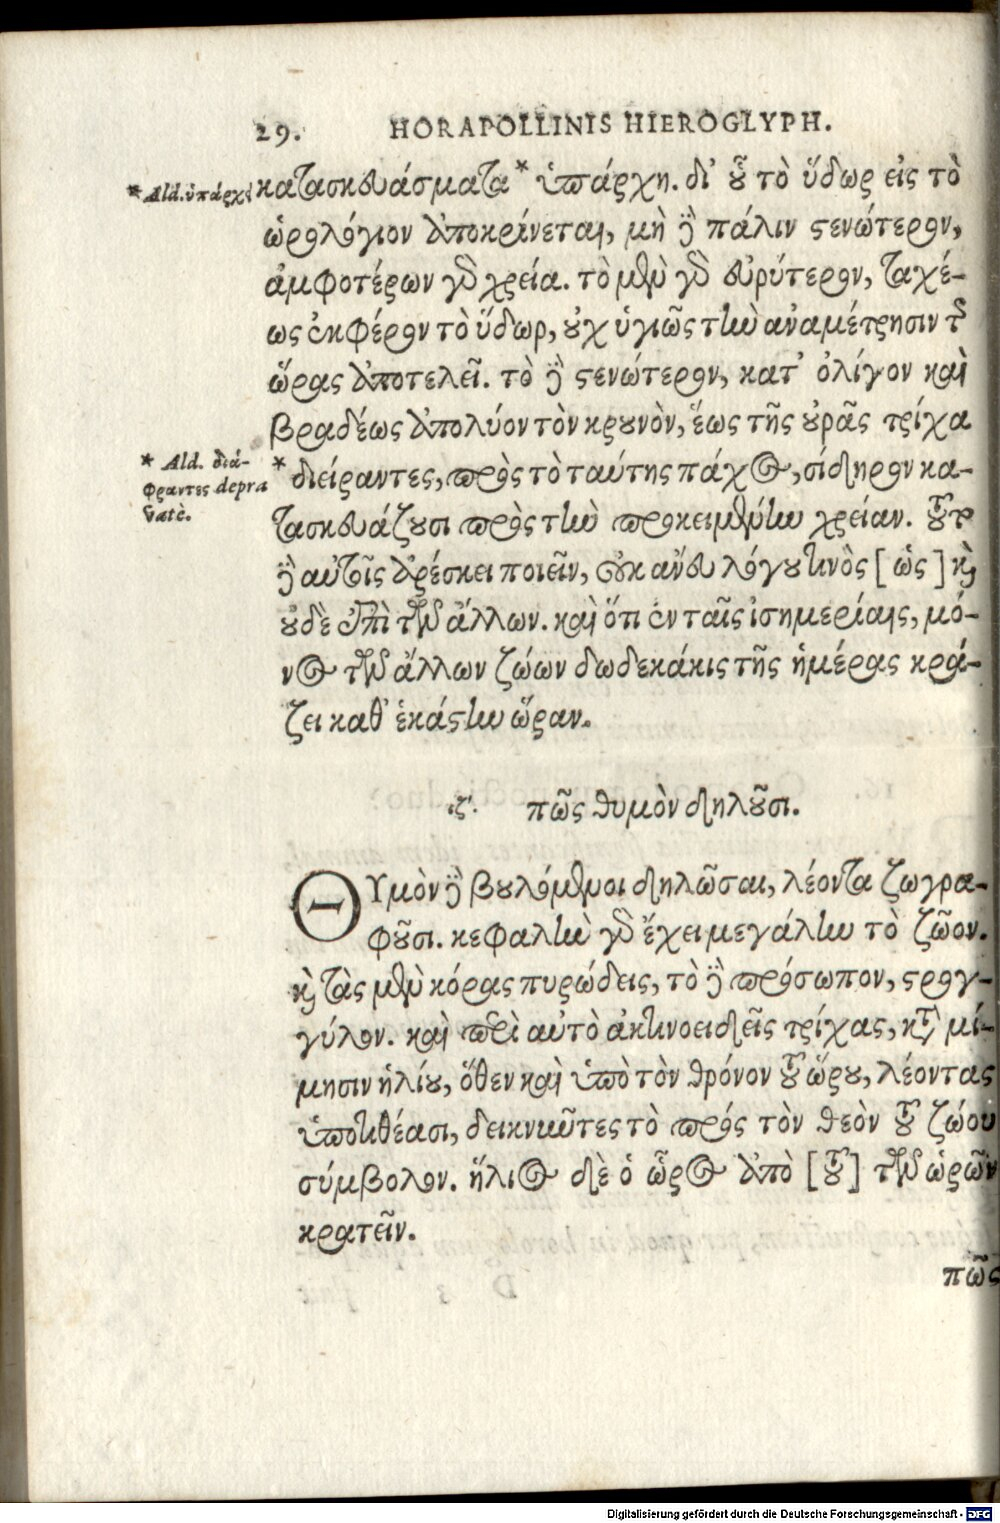 29. HORAPOLLINIS HIEROGLYPH.
* Ald. ὑπάρχει
κατασκευάσματα* ὑπάρχῃ. δι' οὗ τὸ ὕδωρ εἰς τὸ
ὡρολόγιον ἀποκρίνεται, μὴ δὲ πάλιν στενώτερον,
ἀμφοτέρων γὰρ χρεία. τὸ μὲν γὰρ εὐρύτερον, ταχέ-
ως ἐκφέρον τὸ ὕδωρ, οὐχ ὑγιῶς τὴν ἀναμέτρησιν τῆς
ὥρας ἀποτελεῖ. τὸ δὲ στενώτερον, κατ' ὀλίγον καὶ
βραδέως ἀπολύον τὸν κρουνὸν, ἕως τῆς οὐρᾶς τρίχα
* Ald. διά-
φραντες depra
vatè.
* διείραντες, πρὸς τὸ ταύτης πάχος, σίδηρον κα-
τασκευάζουσι πρὸς τὴν προκειμένην χρείαν. τοῦτο
δὲ αὐτοῖς ἀρέσκει ποιεῖν, οὐκ ἄνευ λόγου τινὸς [ὡς] καὶ
οὐδὲ ἐπὶ τῶν ἄλλων. καὶ ὅτι ἐν ταῖς ἰσημερίαις, μό-
νος τῶν ἄλλων ζώων δωδεκάκις τῆς ἡμέρας κρά-
ζει καθ' ἑκάστην ὥραν.
ιζ'. πῶς θυμὸν δηλοῦσι.
ΘΥμὸν δὲ βουλόμενοι δηλῶσαι, λέοντα ζωγρα-
φοῦσι. κεφαλὴν γὰρ ἔχει μεγάλην τὸ ζῶον.
καὶ τὰς μὲν κόρας πυρώδεις, τὸ δὲ πρόσωπον, στρογ-
γύλον. καὶ περὶ αὐτὸ ἀκτινοειδεῖς τρίχας, κατὰ μί-
μησιν ἡλίου, ὅθεν καὶ ὑπὸ τὸν θρόνον τοῦ ὥρου, λέοντας
ὑποτιθέασι, δεικνῦντες τὸ πρός τὸν θεὸν τοῦ ζώου
σύμβολον. ἥλιος δὲ ὁ ὦρος ἀπὸ [τοῦ] τῶν ὡρῶν
κρατεῖν.
πῶς
Digitalisierung gefördert durch die Deutsche Forschungsgemeinschaft - DFG